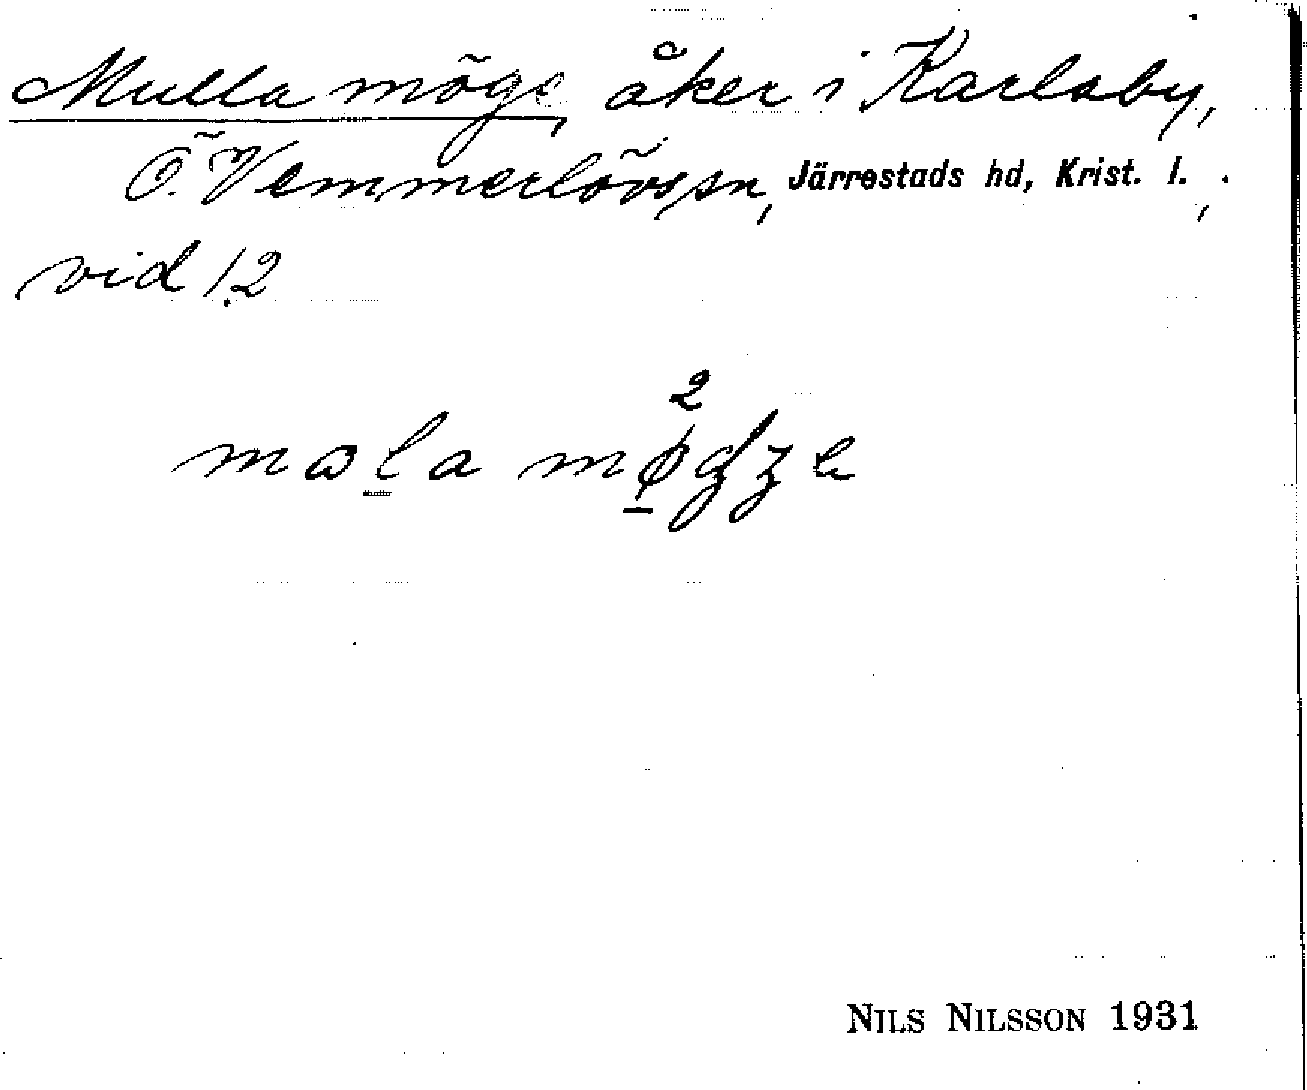 Mulla möge, åker i Karlaby,
Ö. Vemmerlövs sn, Järrestads hd, Krist. l.,
vid 12
2
NILS NILSSON 1931